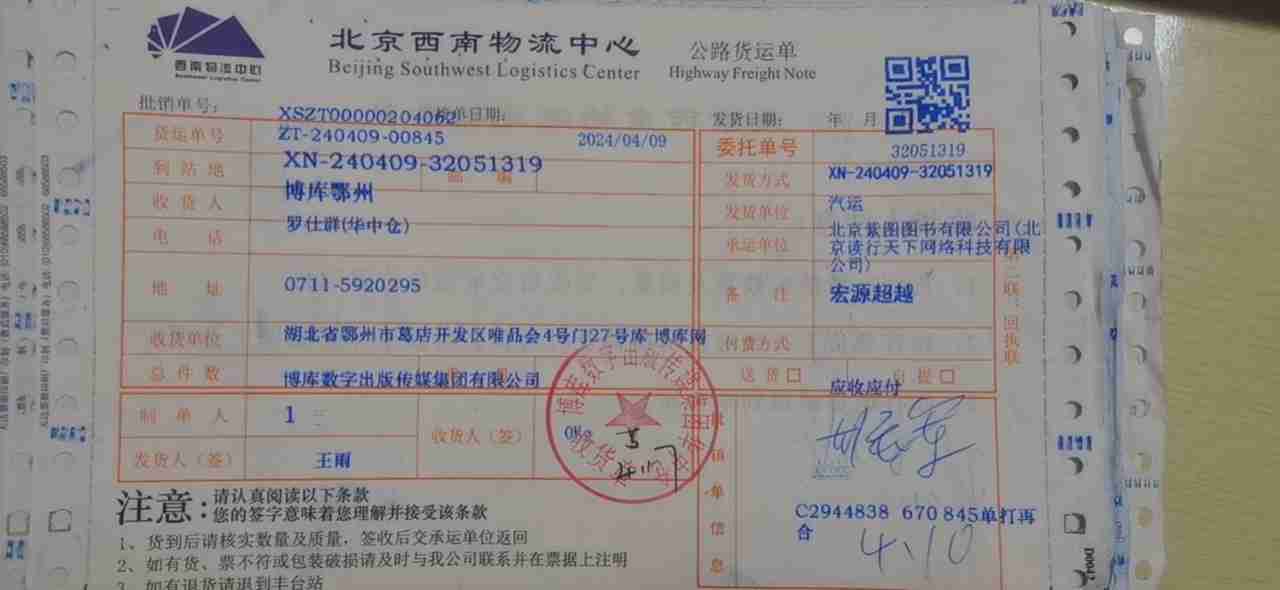 西南物流中心
Southwest Logistics Center
北京西南物流中心
Beijing Southwest Logistics Center
公路货运单
Highway Freight Note
批销单号: XSZT00000204062 单日期:
发货日期: 年 月
货运单号 ZT-240409-00845 2024/04/09
委托单号 32051319
到站地 XN-240409-32051319
发货方式 XN-240409-32051319
收货人 博库鄂州
发货单位 汽运
电话 罗仕群(华中仓)
承运单位 北京紫图图书有限公司(北
京读行天下网络科技有限
公司)
地址 0711-5920295
备注 宏源超越
收货单位 湖北省鄂州市葛店开发区唯品会4号门27号库 博库网
付费方式
总件数 博库数字出版传媒集团有限公司
送货 自提
应收应付
制单人 1
收货人(签)
发货人(签) 王雨
单信息
C2944838 670845单打再
合
4.10
第二联:回执联
注意:
请认真阅读以下条款
您的签字意味着您理解并接受该条款
1、货到后请核实数量及质量,签收后交承运单位返回
2、如有货、票不符或包装破损请及时与我公司联系并在票据上注明
3、如有退货请退到丰台站